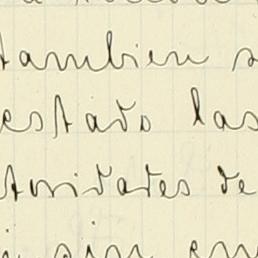 tambien s
estado las
toridades de